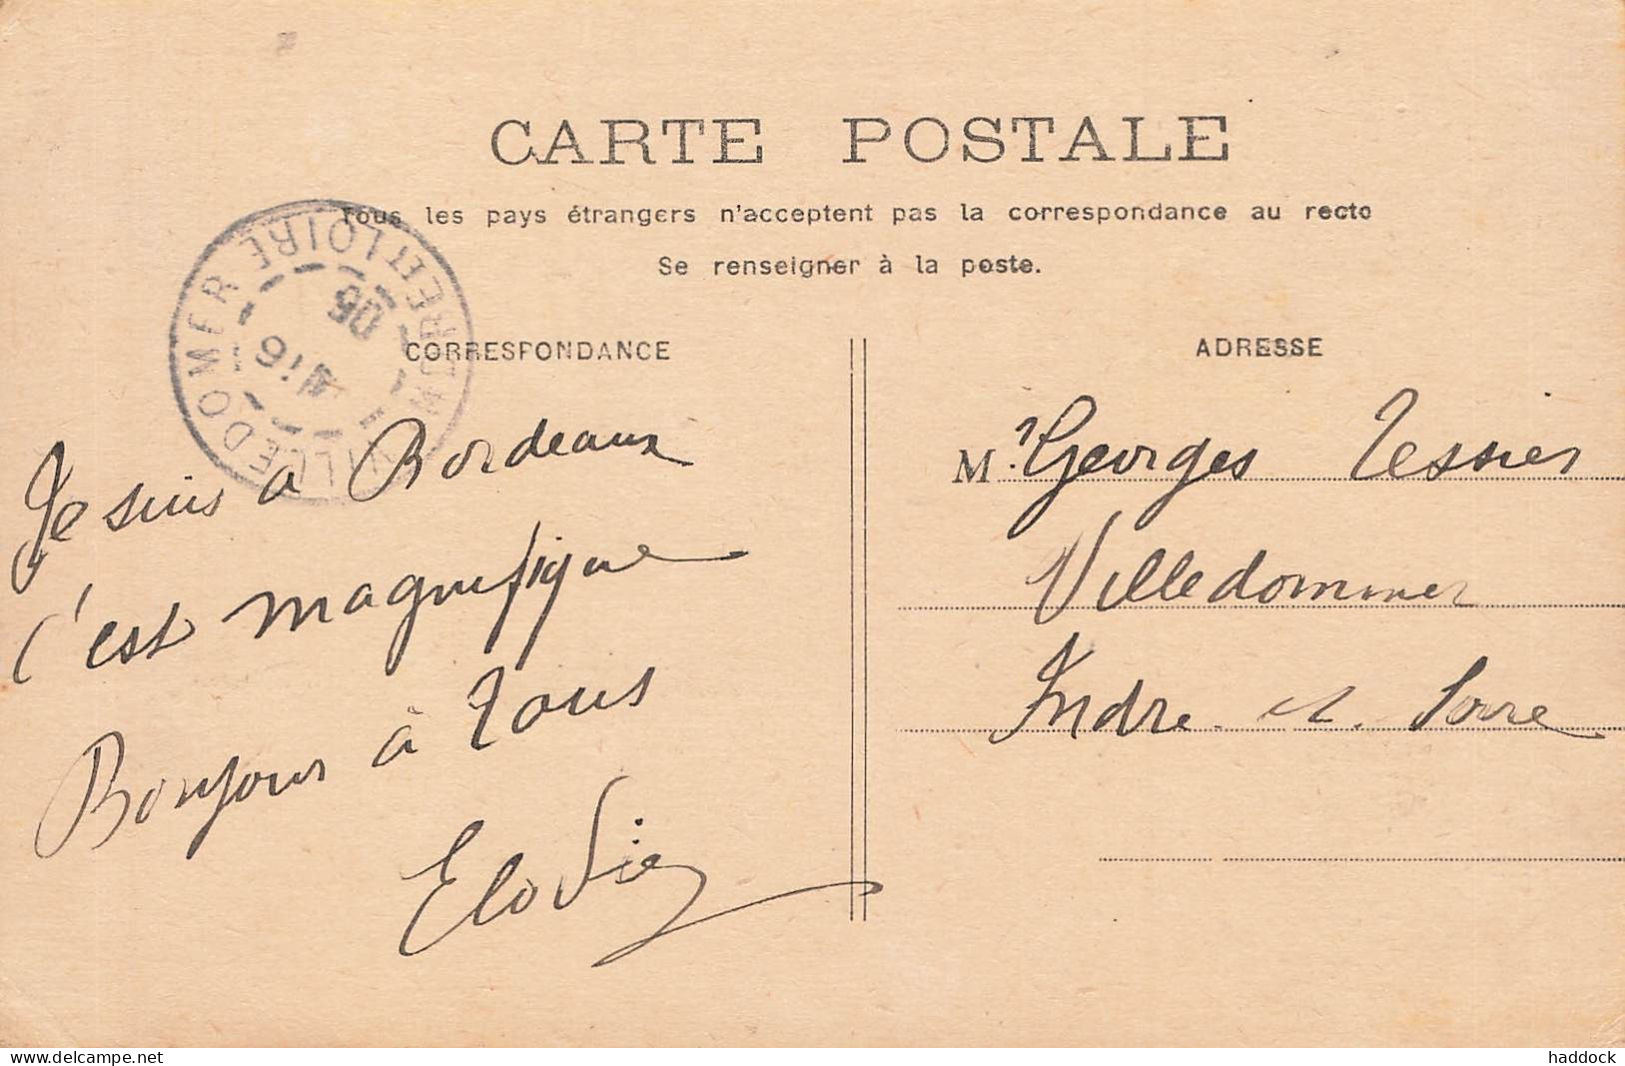 CARTE POSTALE
Tous les pays étrangers n'acceptent pas la correspondance au recto
Se renseigner à la poste.
CORRESPONDANCE
Je suis à Bordeaux
c'est magnifique
Bonjour à tous
Elodie
ADRESSE
M. Georges Tessier
Villedommer
Indre et Loire
VILLEDOMER INDRE ET LOIRE
05
www.delcampe.net
haddock